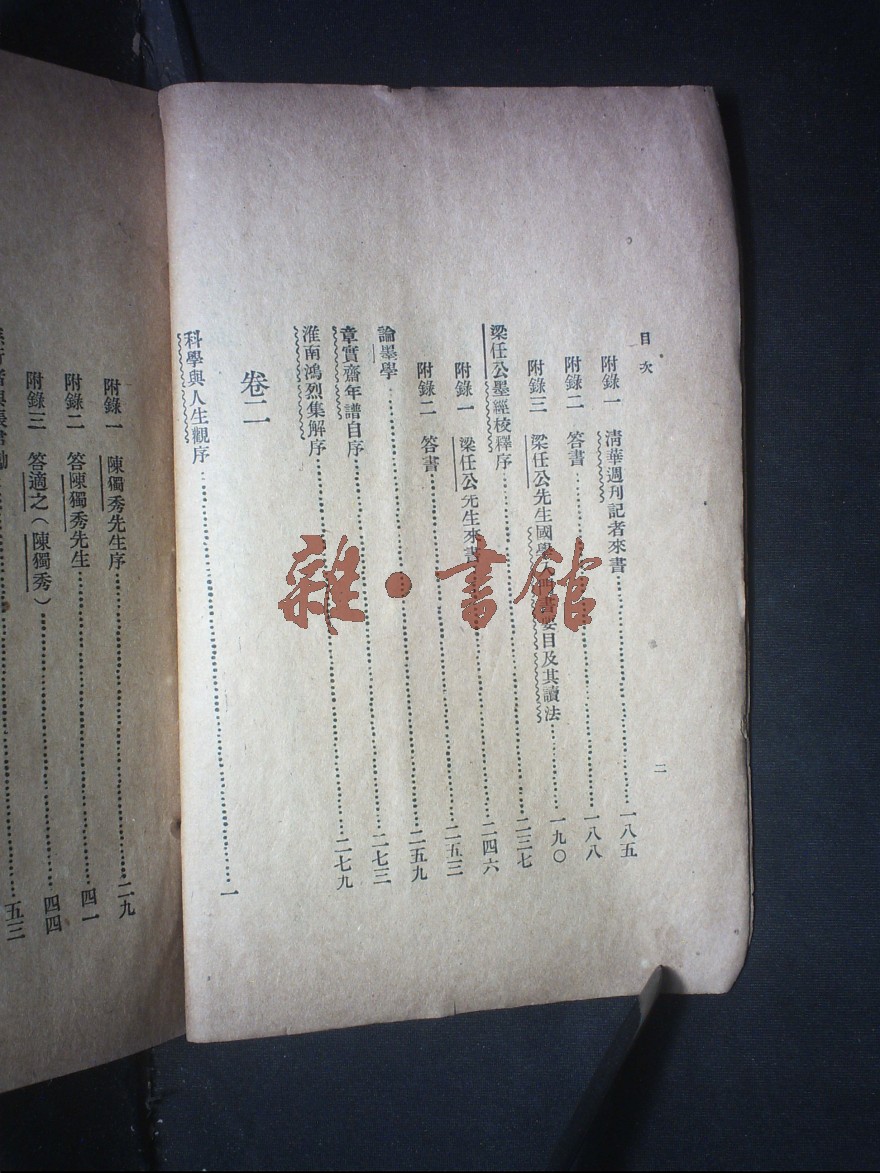 目次
二
附錄一 清華週刊記者來書……一八五
附錄二 答書……一八八
附錄三 梁任公先生國學入門書要目及其讀法……一九〇
梁任公墨經校釋序……二三七
附錄一 梁任公先生來書……二四六
附錄二 答書……二五三
論墨學……二五九
章實齋年譜自序……二七三
淮南鴻烈集解序……二七九
卷二
科學與人生觀序……一
附錄一 陳獨秀先生序……二九
附錄二 答陳獨秀先生……四一
附錄三 答適之(陳獨秀)……四四
行者與張君勱……五三
雜·書館